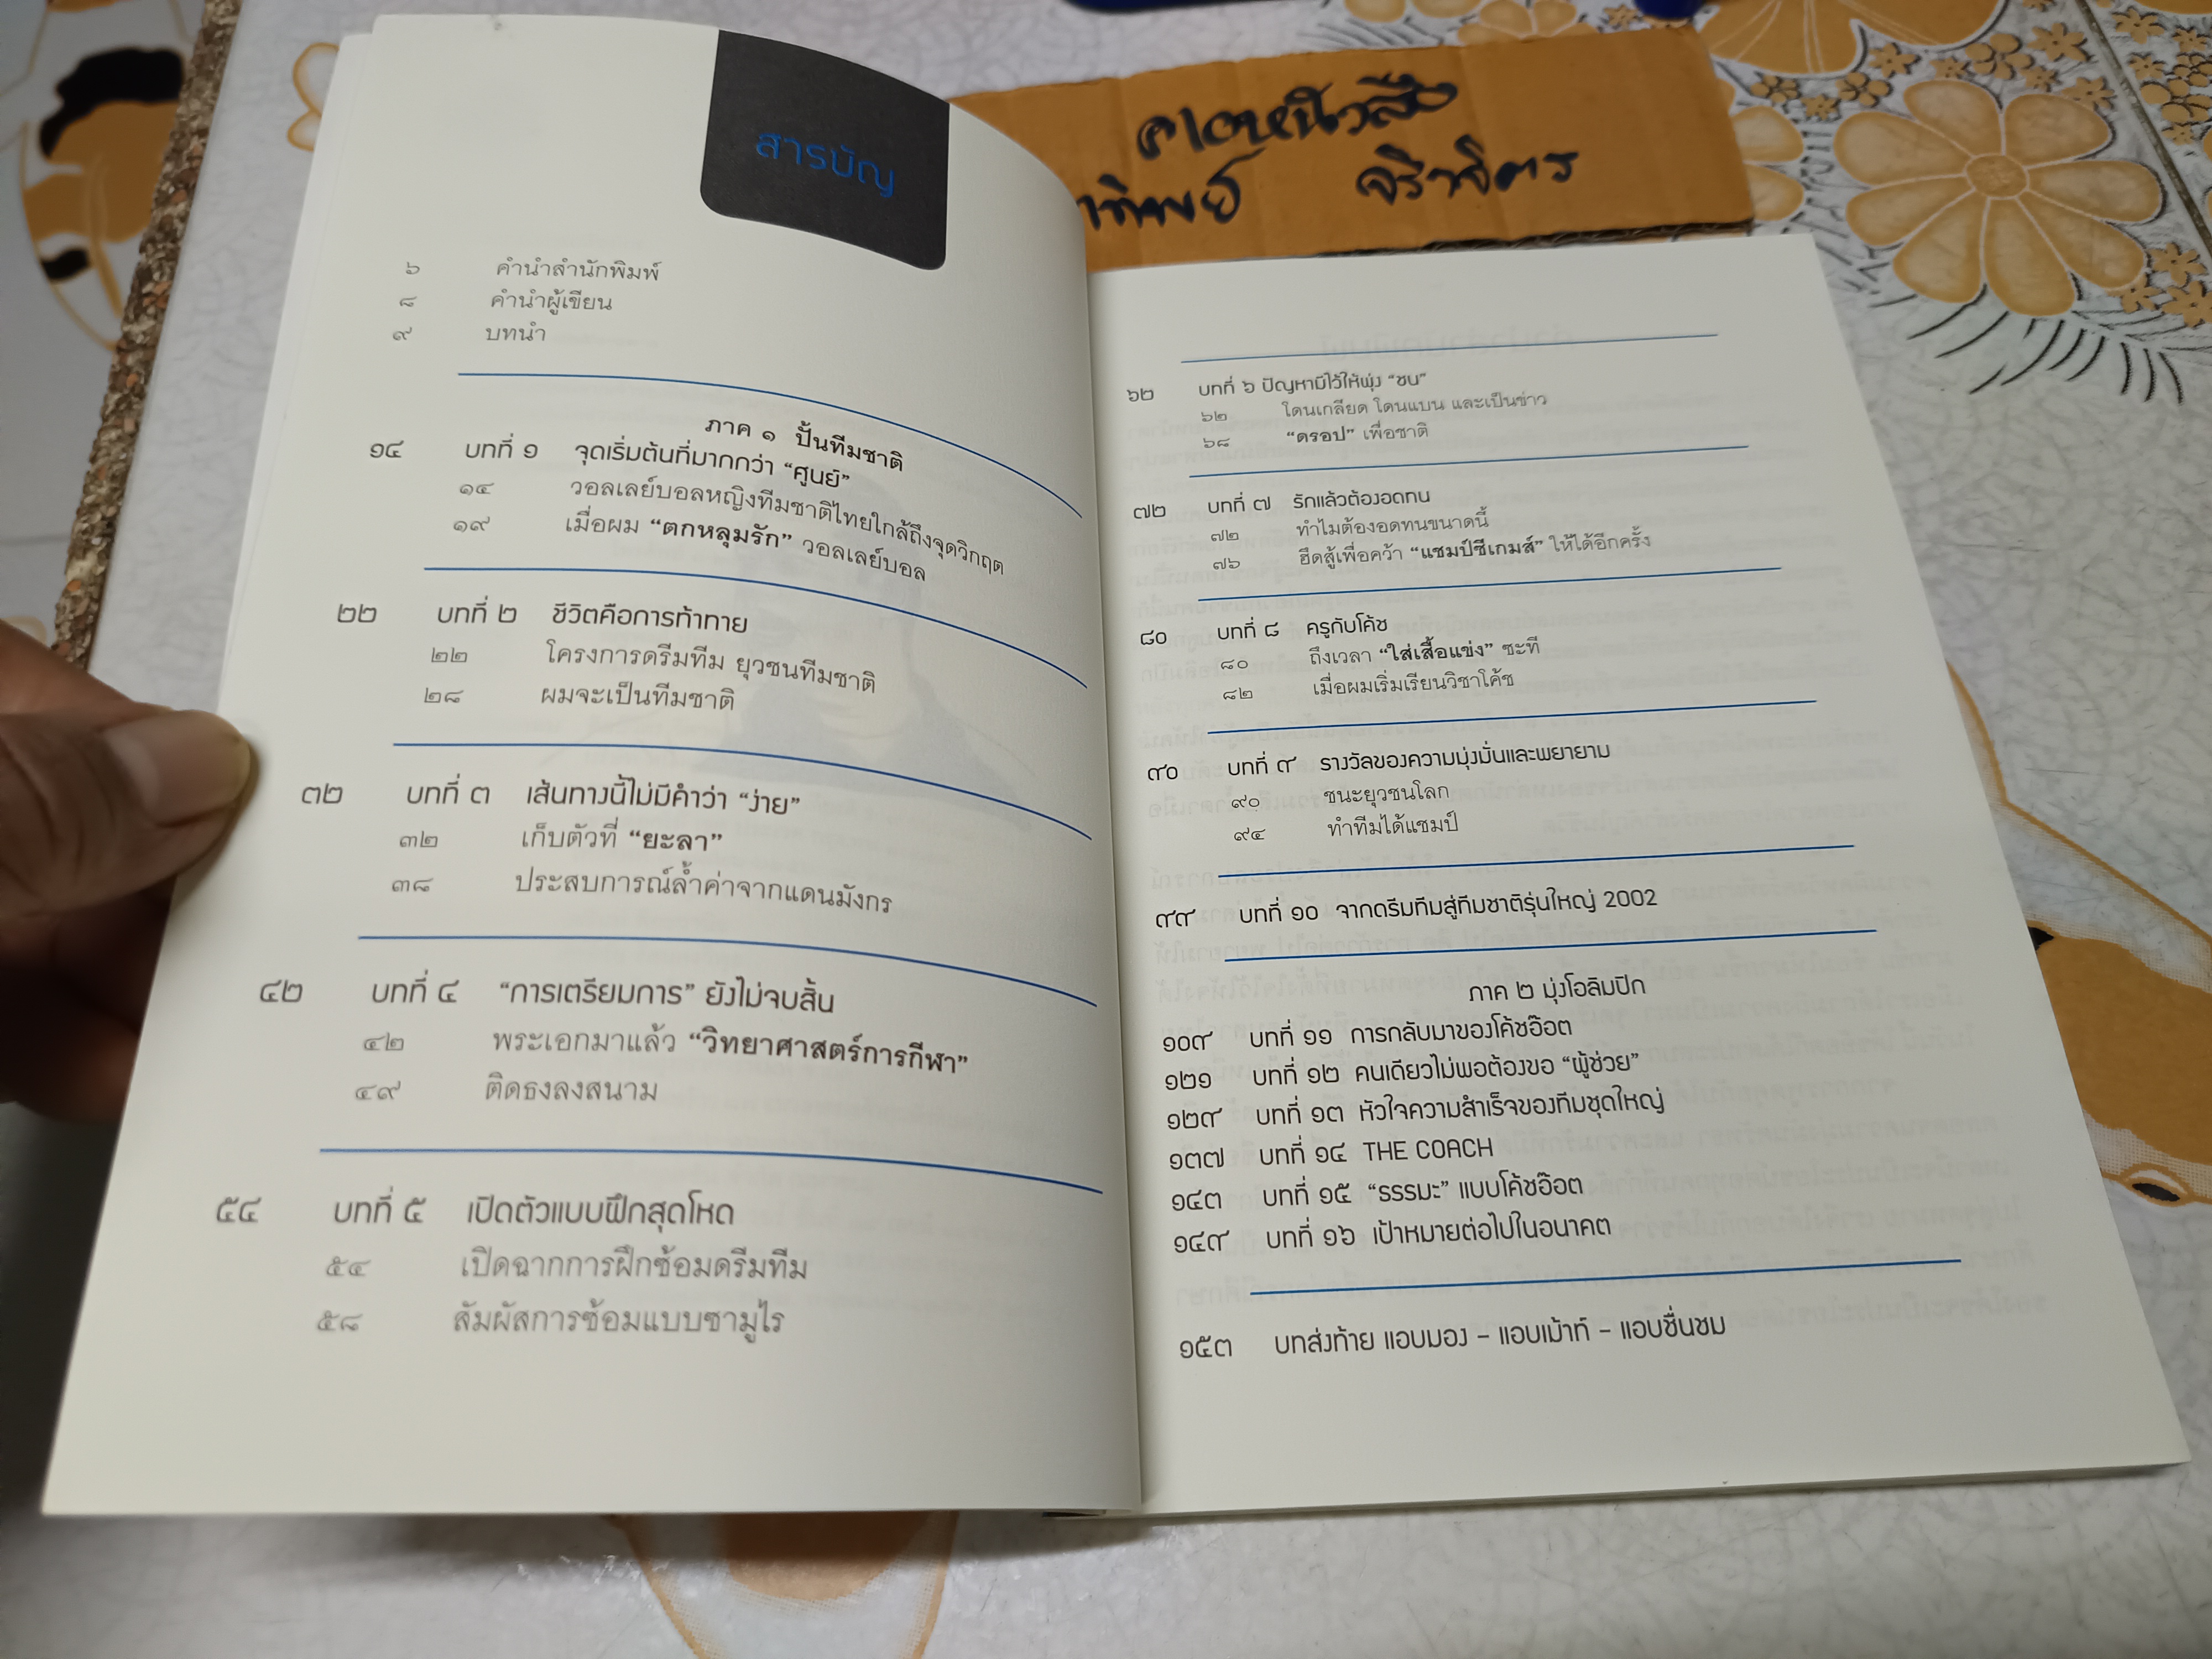 สารบัญ
๖ คำนำสำนักพิมพ์
๘ คำนำผู้เขียน
๙ บทนำ
ภาค ๑ ปั้นทีมชาติ
๑๔ บทที่ ๑ จุดเริ่มต้นที่มากกว่า “ศูนย์”
๑๔ วอลเลย์บอลหญิงทีมชาติไทยใกล้ถึงจุดวิกฤต
๑๙ เมื่อผม “ตกหลุมรัก” วอลเลย์บอล
๒๒ บทที่ ๒ ชีวิตคือการท้าทาย
๒๒ โครงการดรีมทีม ยุวชนทีมชาติ
๒๘ ผมจะเป็นทีมชาติ
๓๒ บทที่ ๓ เส้นทางนี้ไม่มีคำว่า “ง่าย”
๓๒ เก็บตัวที่ “ยะลา”
๓๘ ประสบการณ์ล้ำค่าจากแดนมังกร
๔๒ บทที่ ๔ “การเตรียมการ” ยังไม่จบสิ้น
๔๒ พระเอกมาแล้ว “วิทยาศาสตร์การกีฬา”
๔๙ ติดธงลงสนาม
๕๔ บทที่ ๕ เปิดตัวแบบฝึกสุดโหด
๕๔ เปิดฉากการฝึกซ้อมดรีมทีม
๕๘ สัมผัสการซ้อมแบบซามูไร
๖๒ บทที่ ๖ ปัญหามีไว้ให้พุ่ง “ชน”
๖๒ โดนเกลียด โดนแบน และเป็นข่าว
๖๘ “ดรอป” เพื่อชาติ
๗๒ บทที่ ๗ รักแล้วต้องอดทน
๗๒ ทำไมต้องอดทนขนาดนี้
๗๖ ฮึดสู้เพื่อคว้า “แชมป์ซีเกมส์” ให้ได้อีกครั้ง
๘๐ บทที่ ๘ ครูกับโค้ช
๘๐ ถึงเวลา “ใส่เสื้อแข่ง” ซะที
๘๒ เมื่อผมเริ่มเรียนวิชาโค้ช
๙๐ บทที่ ๙ รางวัลของความมุ่งมั่นและพยายาม
๙๐ ชนะยุวชนโลก
๙๔ ทำทีมได้แชมป์
๙๙ บทที่ ๑๐ จากดรีมทีมสู่ทีมชาติรุ่นใหญ่ 2002
ภาค ๒ มุ่งโอลิมปิก
๑๐๙ บทที่ ๑๑ การกลับมาของโค้ชอ๊อต
๑๒๑ บทที่ ๑๒ คนเดียวไม่พอต้องขอ “ผู้ช่วย”
๑๒๙ บทที่ ๑๓ หัวใจความสำเร็จของทีมชุดใหญ่
๑๓๗ บทที่ ๑๔ THE COACH
๑๔๓ บทที่ ๑๕ “ธรรมะ” แบบโค้ชอ๊อต
๑๔๙ บทที่ ๑๖ เป้าหมายต่อไปในอนาคต
๑๕๓ บทส่งท้าย แอบมอง – แอบเม้าท์ – แอบชื่นชม